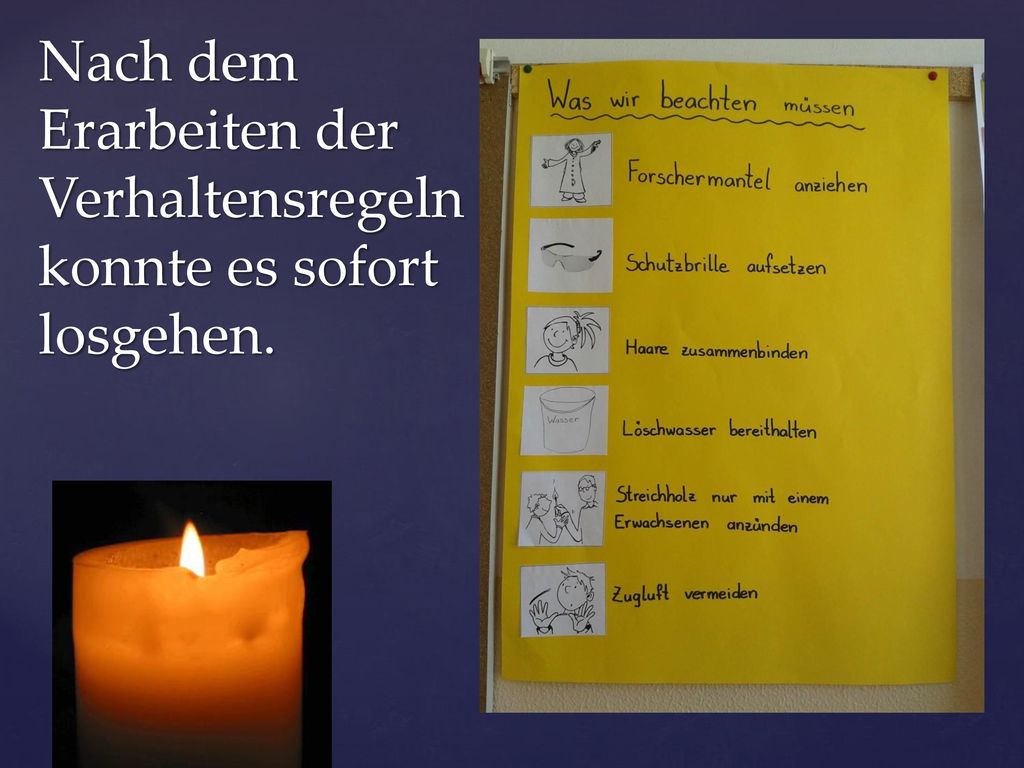 Nach dem
Erarbeiten der
Verhaltensregeln
konnte es sofort
losgehen.
Was wir beachten müssen
Forschermantel anziehen
Schutzbrille aufsetzen
Haare zusammenbinden
Wasser
Löschwasser bereithalten
Streichholz nur mit einem
Erwachsenen anzünden
Zugluft vermeiden